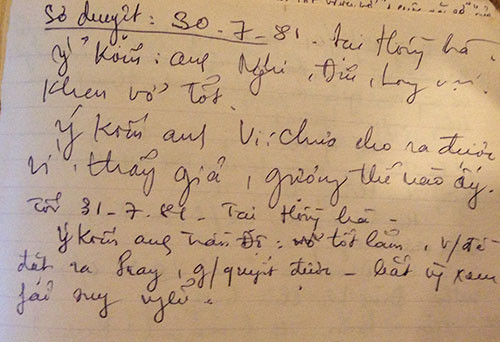 Sơ duyệt: 30-7-81 - Tại Hồng hà.
Ý Kiến: anh Nghi, Đẩu, Long vui.
Khen vở tốt.
Ý Kiến anh Vi: chưa cho ra được
vì, thấy giả, gượng thế nào ấy.
Tối 31-7-81 - Tại Hồng hà -
Ý Kiến anh trần Độ: vở tốt lắm, v/đề
đặt ra hay, g/quyết được - bắt ng xem
fải suy nghĩ.